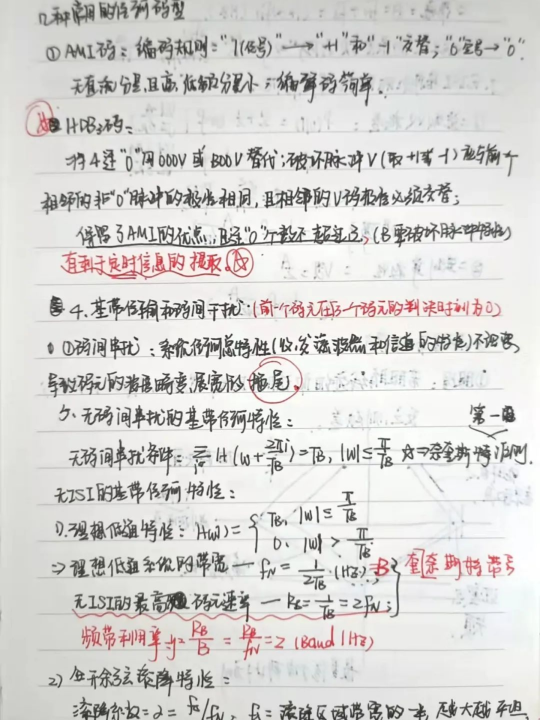 几种常用的传输码型
① AMI码：编码规则："1(传号)" → "+1"和"-1"交替；"0"空号→"0".
无直流分量,且高、低频分量小；编解码简单.
HDB3码：
将4连"0"用000V或B00V替代；破坏脉冲V(取+1或-1)应与前个
相邻的非"0"脉冲的极性相同,且相邻的V码极性必须交替；
保留了AMI的优点,且连"0"个数不超过3,(B
有利于定时信息的提取.
4. 基带传输和码间干扰：(前一个码元在后一个码元的判决时刻为0)
①码间串扰：系统传输总特性(收、发滤波器和信道的特性)不理想
导致码元的波形畸变,展宽、拖尾.
无码间串扰的基带传输特性：
第一
无码间串扰条件：Σ H(w+2πi/TB)=TB, |w|≤π/TB ☆⇒奈奎斯特准则.
无ISI的基带传输特性：
1).理想低通特性：H(w)= { TB, |w|≤π/TB
0, |w|>π/TB
⇒理想低通系统的带宽 — fN=1/2TB (Hz) =B } 奎奈斯特带宽
无ISI的最高码元速率 — RB=1/TB=2fN;
频带利用率 η=RB/B=RB/fN=2 (Baud/Hz)
2) 余弦滚降特性：
滚降系数=α=